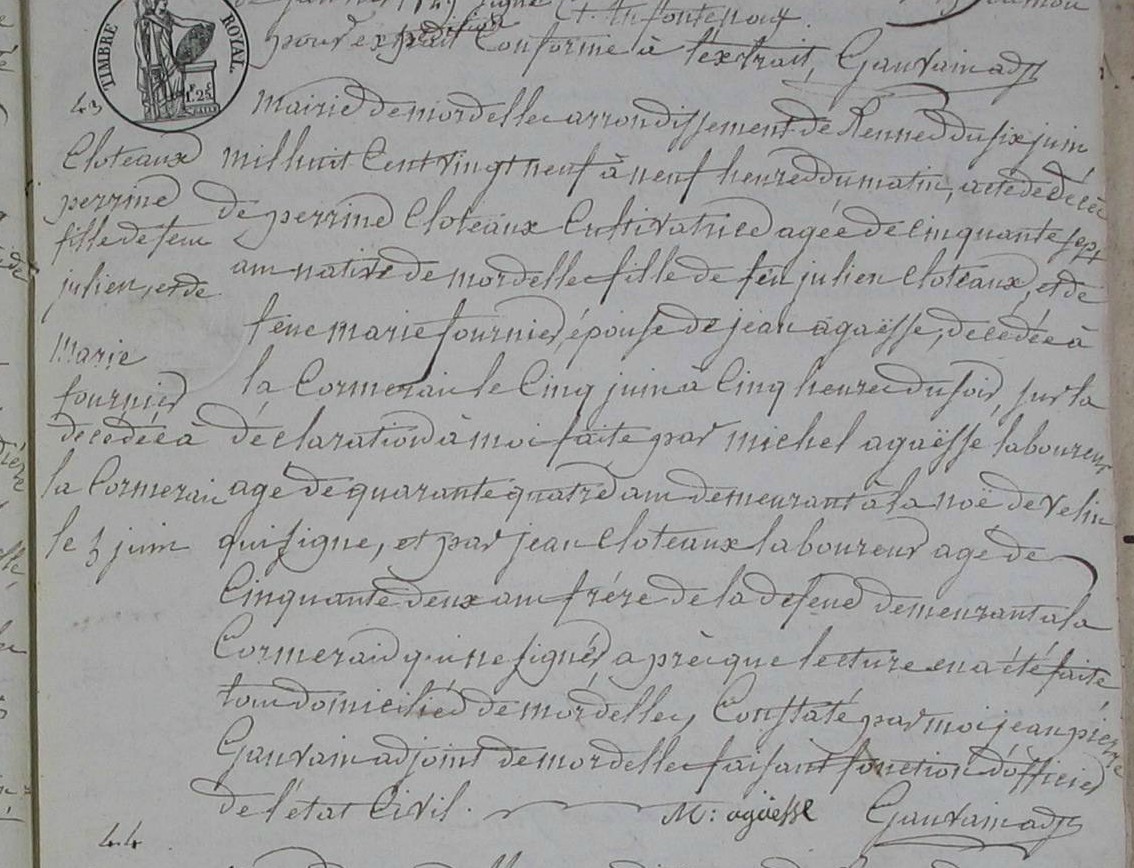 pour extrait Conforme à l'extrait, Gauvain adjt
TIMBRE ROYAL
1.25
43
Cloteaux
perrine
fille de feue
julien, et de
Marie
fournier
décédée à
la Cormerais
le 5 juin
Mairie de mordelles arrondissement de Rennes du six juin
mil huit Cent vingt neuf à neuf heures du matin, acte de décès
de perrine Cloteaux Cultivatrice agée de cinquante sept
ans native de mordelles fille de feu julien Cloteaux, et de
feue marie fournier, épouse de jean agaësse, décédée à
la Cormerais le Cinq juin à Cinq heures du soir, sur la
déclaration à moi faite par michel agaësse laboureur
agé de quarante quatre ans demeurant à la noë de velin
qui signe, et par jean Cloteaux laboureur agé de
Cinquante deux ans frére de la defeue demeurant a la
Cormerais qui ne signe, après que lecture en a été faite
tous domiciliés de mordelles, Constaté par moi jean pierre
Gauvain adjoint de mordelles faisant fonction d'officier
de l'état Civil. M: agaësse Gauvain adjt
44